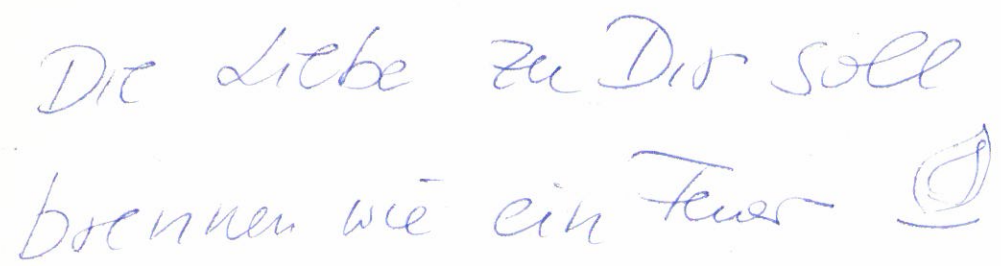 Die Liebe zu Dir soll
brennen wie ein Feuer